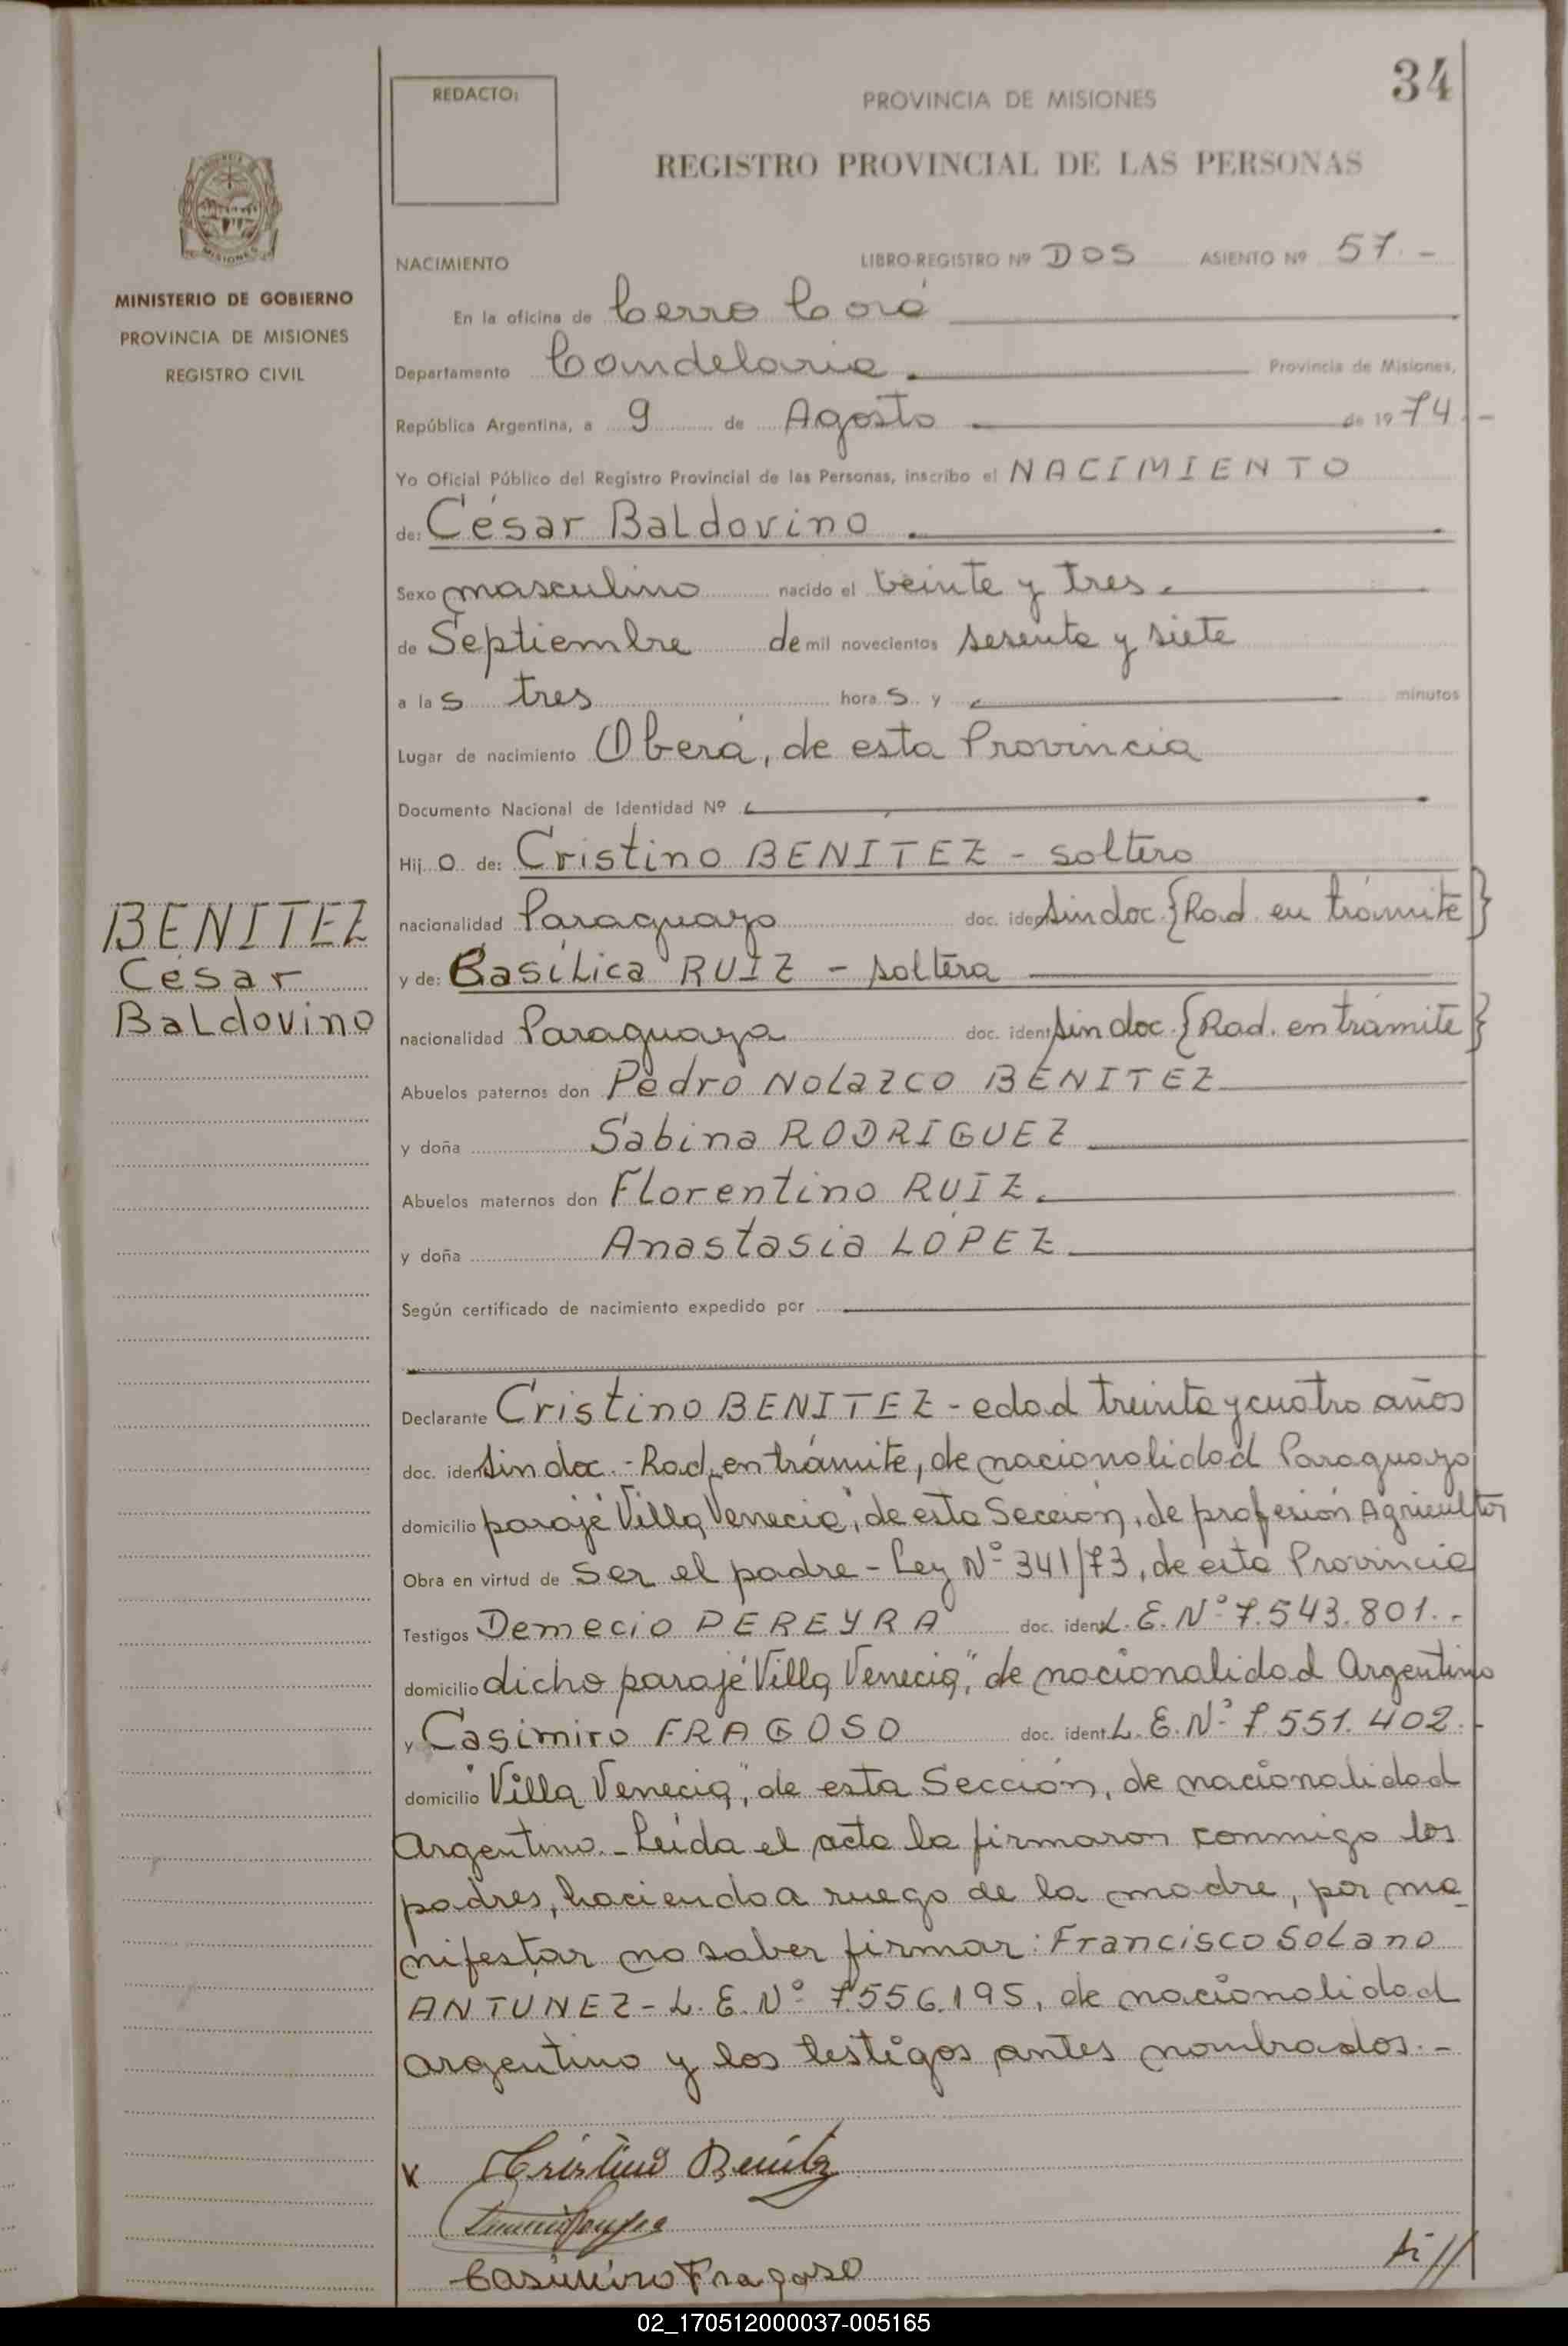 34
REDACTO:
PROVINCIA DE MISIONES
REGISTRO PROVINCIAL DE LAS PERSONAS
MISIONES
MINISTERIO DE GOBIERNO
PROVINCIA DE MISIONES
REGISTRO CIVIL
NACIMIENTO LIBRO-REGISTRO Nº DOS ASIENTO Nº 57.-
En la oficina de Cerro Corá
Departamento Candelaria Provincia de Misiones,
República Argentina, a 9 de Agosto de 1974.-
Yo Oficial Público del Registro Provincial de las Personas, inscribo el NACIMIENTO
de: César BaLdovino
Sexo masculino nacido el veinte y tres
de Septiembre de mil novecientos sesenta y siete
a las tres horas y minutos
Lugar de nacimiento Oberá, de esta Provincia
Documento Nacional de Identidad Nº
Hijo de: Cristino BENITEZ - soltero
nacionalidad Paraguayo doc. ident sin doc. {Rad. en trámite}
y de: BasíLica RUIZ - soltera
nacionalidad Paraguaya doc. ident sin doc. {Rad. en trámite}
BENITEZ
César
BaLdovino
Abuelos paternos don Pedro NoLazco BENITEZ
y doña Sabina RODRIGUEZ
Abuelos maternos don FLorentino RUIZ.
y doña Anastasia LÓPEZ
Según certificado de nacimiento expedido por
Declarante Cristino BENITEZ - edad treinta y cuatro años
doc. iden sin doc.- Rad. en trámite, de nacionalidad Paraguayo
domicilio paraje "Villa Venecia", de esta Sección, de profesión Agricultor
Obra en virtud de ser el padre - Ley Nº 341/73, de esta Provincia
Testigos Demecio PEREYRA doc. iden L.E. Nº 7.543.801.-
domicilio dicho paraje "Villa Venecia", de nacionalidad Argentino
y Casimiro FRAGOSO doc. ident. L.E. Nº 7.551.402.-
domicilio "Villa Venecia", de esta Sección, de nacionalidad
Argentino.- Leída el acta la firmaron conmigo los
padres, haciendo a ruego de la madre, por ma-
nifestar no saber firmar: Francisco SoLano
ANTUNEZ - L.E. Nº 7556.195, de nacionalidad
argentino y los testigos antes nombrados.-
x Cristino Benitez
Casimiro Fragoso
02_170512000037-005165